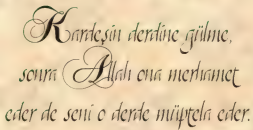 Kardeşin derdine gülme,
sonra Allah ona merhamet
eder de seni o derde müptela eder.